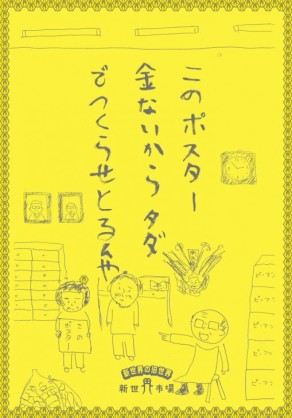 このポスター
金ないからタダ
でつくらせとるんや
ピーマン
ピーマン
ピーマン
この
ポスタ
新世界の旧世界
新世界市場